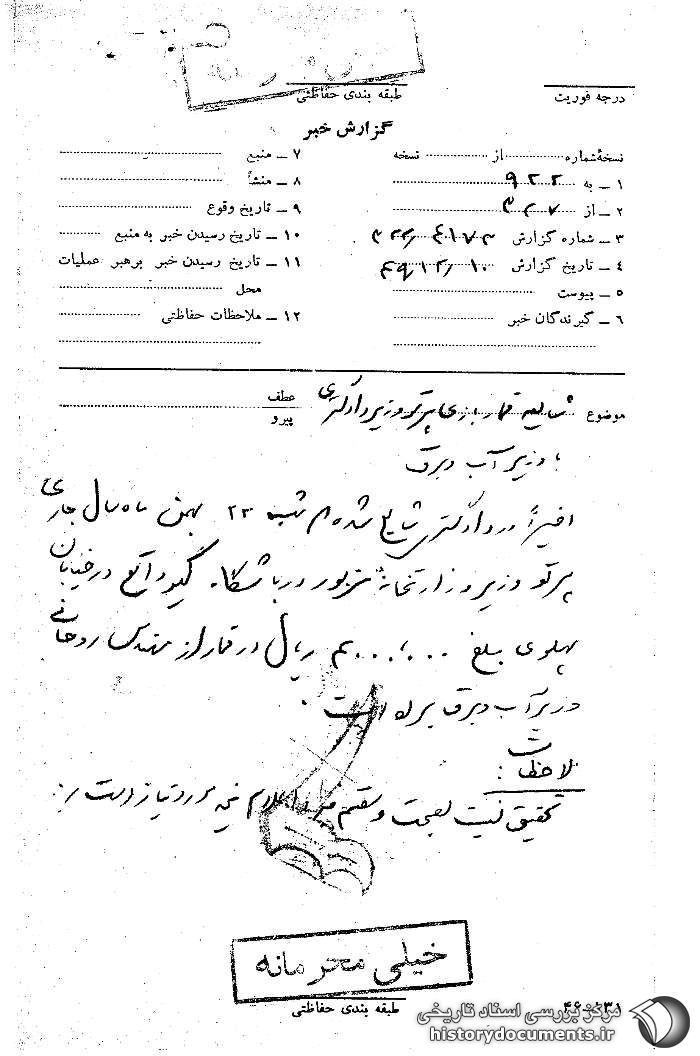 طبقه بندی حفاظتی
درجه فوریت
گزارش خبر
نسخهٔ شماره ........ از ........ نسخه
۱ ــ به ۹۲۲
۲ ــ از ۳۰۷
۳ ــ شماره گزارش
۴ ــ تاریخ گزارش ۴۹/۱۲/۱۰
۵ ــ پیوست
۶ ــ گیرندگان خبر
۷ ــ منبع
۸ ــ منشأ
۹ ــ تاریخ وقوع
۱۰ ــ تاریخ رسیدن خبر به منبع
۱۱ ــ تاریخ رسیدن خبر برهبر عملیات
محل
۱۲ ــ ملاحظات حفاظتی
موضوع شایعه قمار بازی پرتو وزیر دادگستری
عطف
پیرو
با وزیر آب و برق
اخیراً در دادگستری شایع شده شب ۲۳ بهمن ماه سال جاری
پرتو وزیر وزارتخانه مزبور در باشگاه واقع در خیابان
پهلوی مبلغ ریال در قمار از مهندس روحانی
وزیر آب و برق برده است .
ملاحظات :
تحقیق نسبت بصحت و سقم خبر و اعلام نتیجه مورد نیاز است
خیلی محرمانه
طبقه بندی حفاظتی
۴۶-۱۳۱
مرکز بررسی اسناد تاریخی
historydocuments.ir